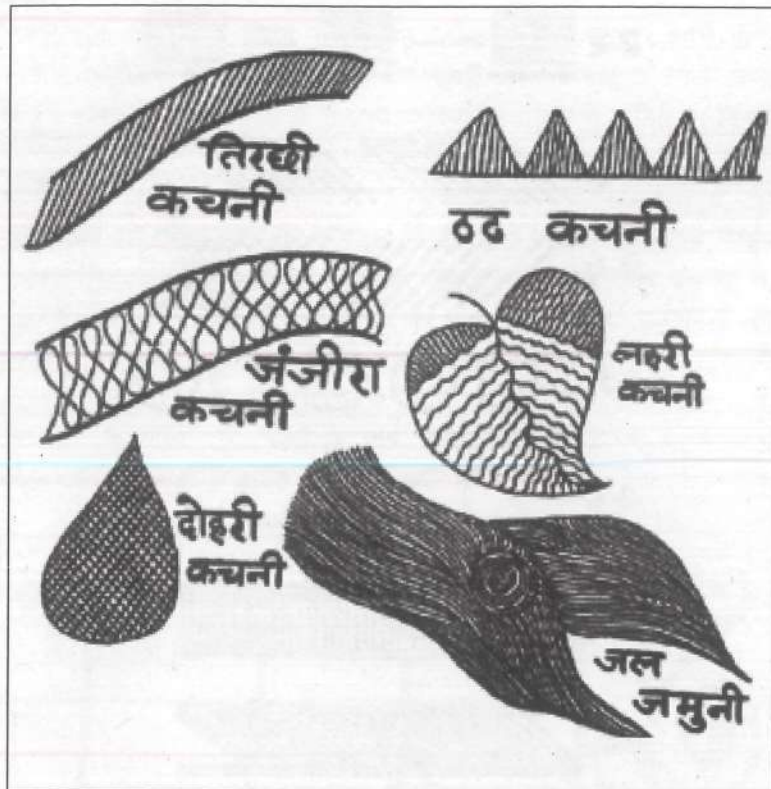 तिरछी
कचनी
ठढ कचनी
जंजीरा
कचनी
लहरी
कचनी
दोहरी
कचनी
जल
जमुनी